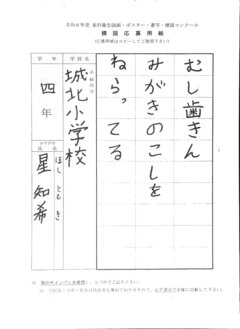 令和6年度 歯科衛生図画・ポスター・書写・標語コンクール
標語応募用紙
(応募用紙はコピーしてご使用下さい)
むし歯きん
みがきのこしを
ねらってる
学校名
城北小学校
四年
ふりがな
氏名
ほし ともき
星 知希